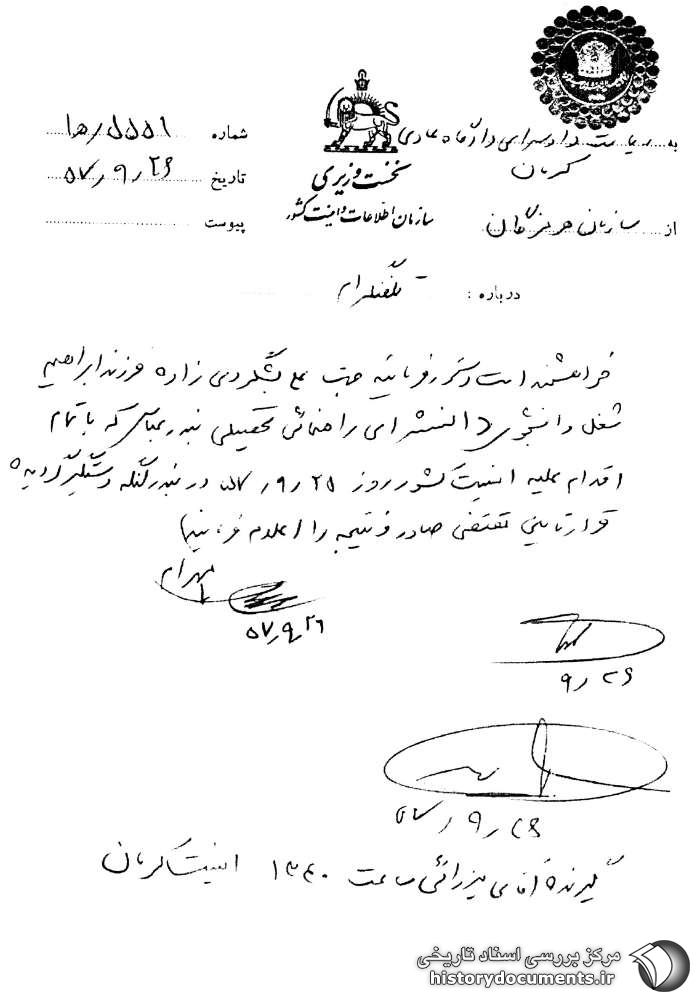 به ریاست دادسرای دادگاه عادی
کرمان
از سازمان هرمزگان
نخست وزیری
سازمان اطلاعات و امنیت کشور
شماره ۵۵۵۱/ها
تاریخ ۵۷/۹/۲۶
پیوست
درباره : تلفنگرام
خواهشمند است دستور فرمائید جهت بشگردی زاده فرزند ابراهیم
شغل دانشجوی دانشسرای راهنمائی تحصیلی بندرعباس که باتهام
اقدام علیه امنیت کشور روز ۵۷/۹/۲۵ در بندرلنگه دستگیر گردیده
قرار تامینی مقتضی صادر و نتیجه را اعلام فرمائید
مهرام
۵۷/۹/۲۶
۹/۲۶
۵۷/۹/۲۶
گیرنده آقای میرزائی ساعت ۱۳۴۰ امنیت کرمان
مرکز بررسی اسناد تاریخی
historydocuments.ir